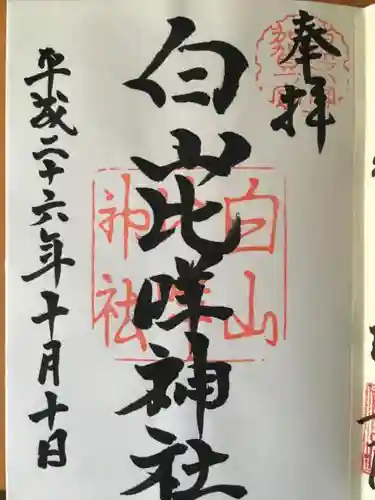 奉拝
白山比咩神社
白山比咩神社
平成二十六年十月十日